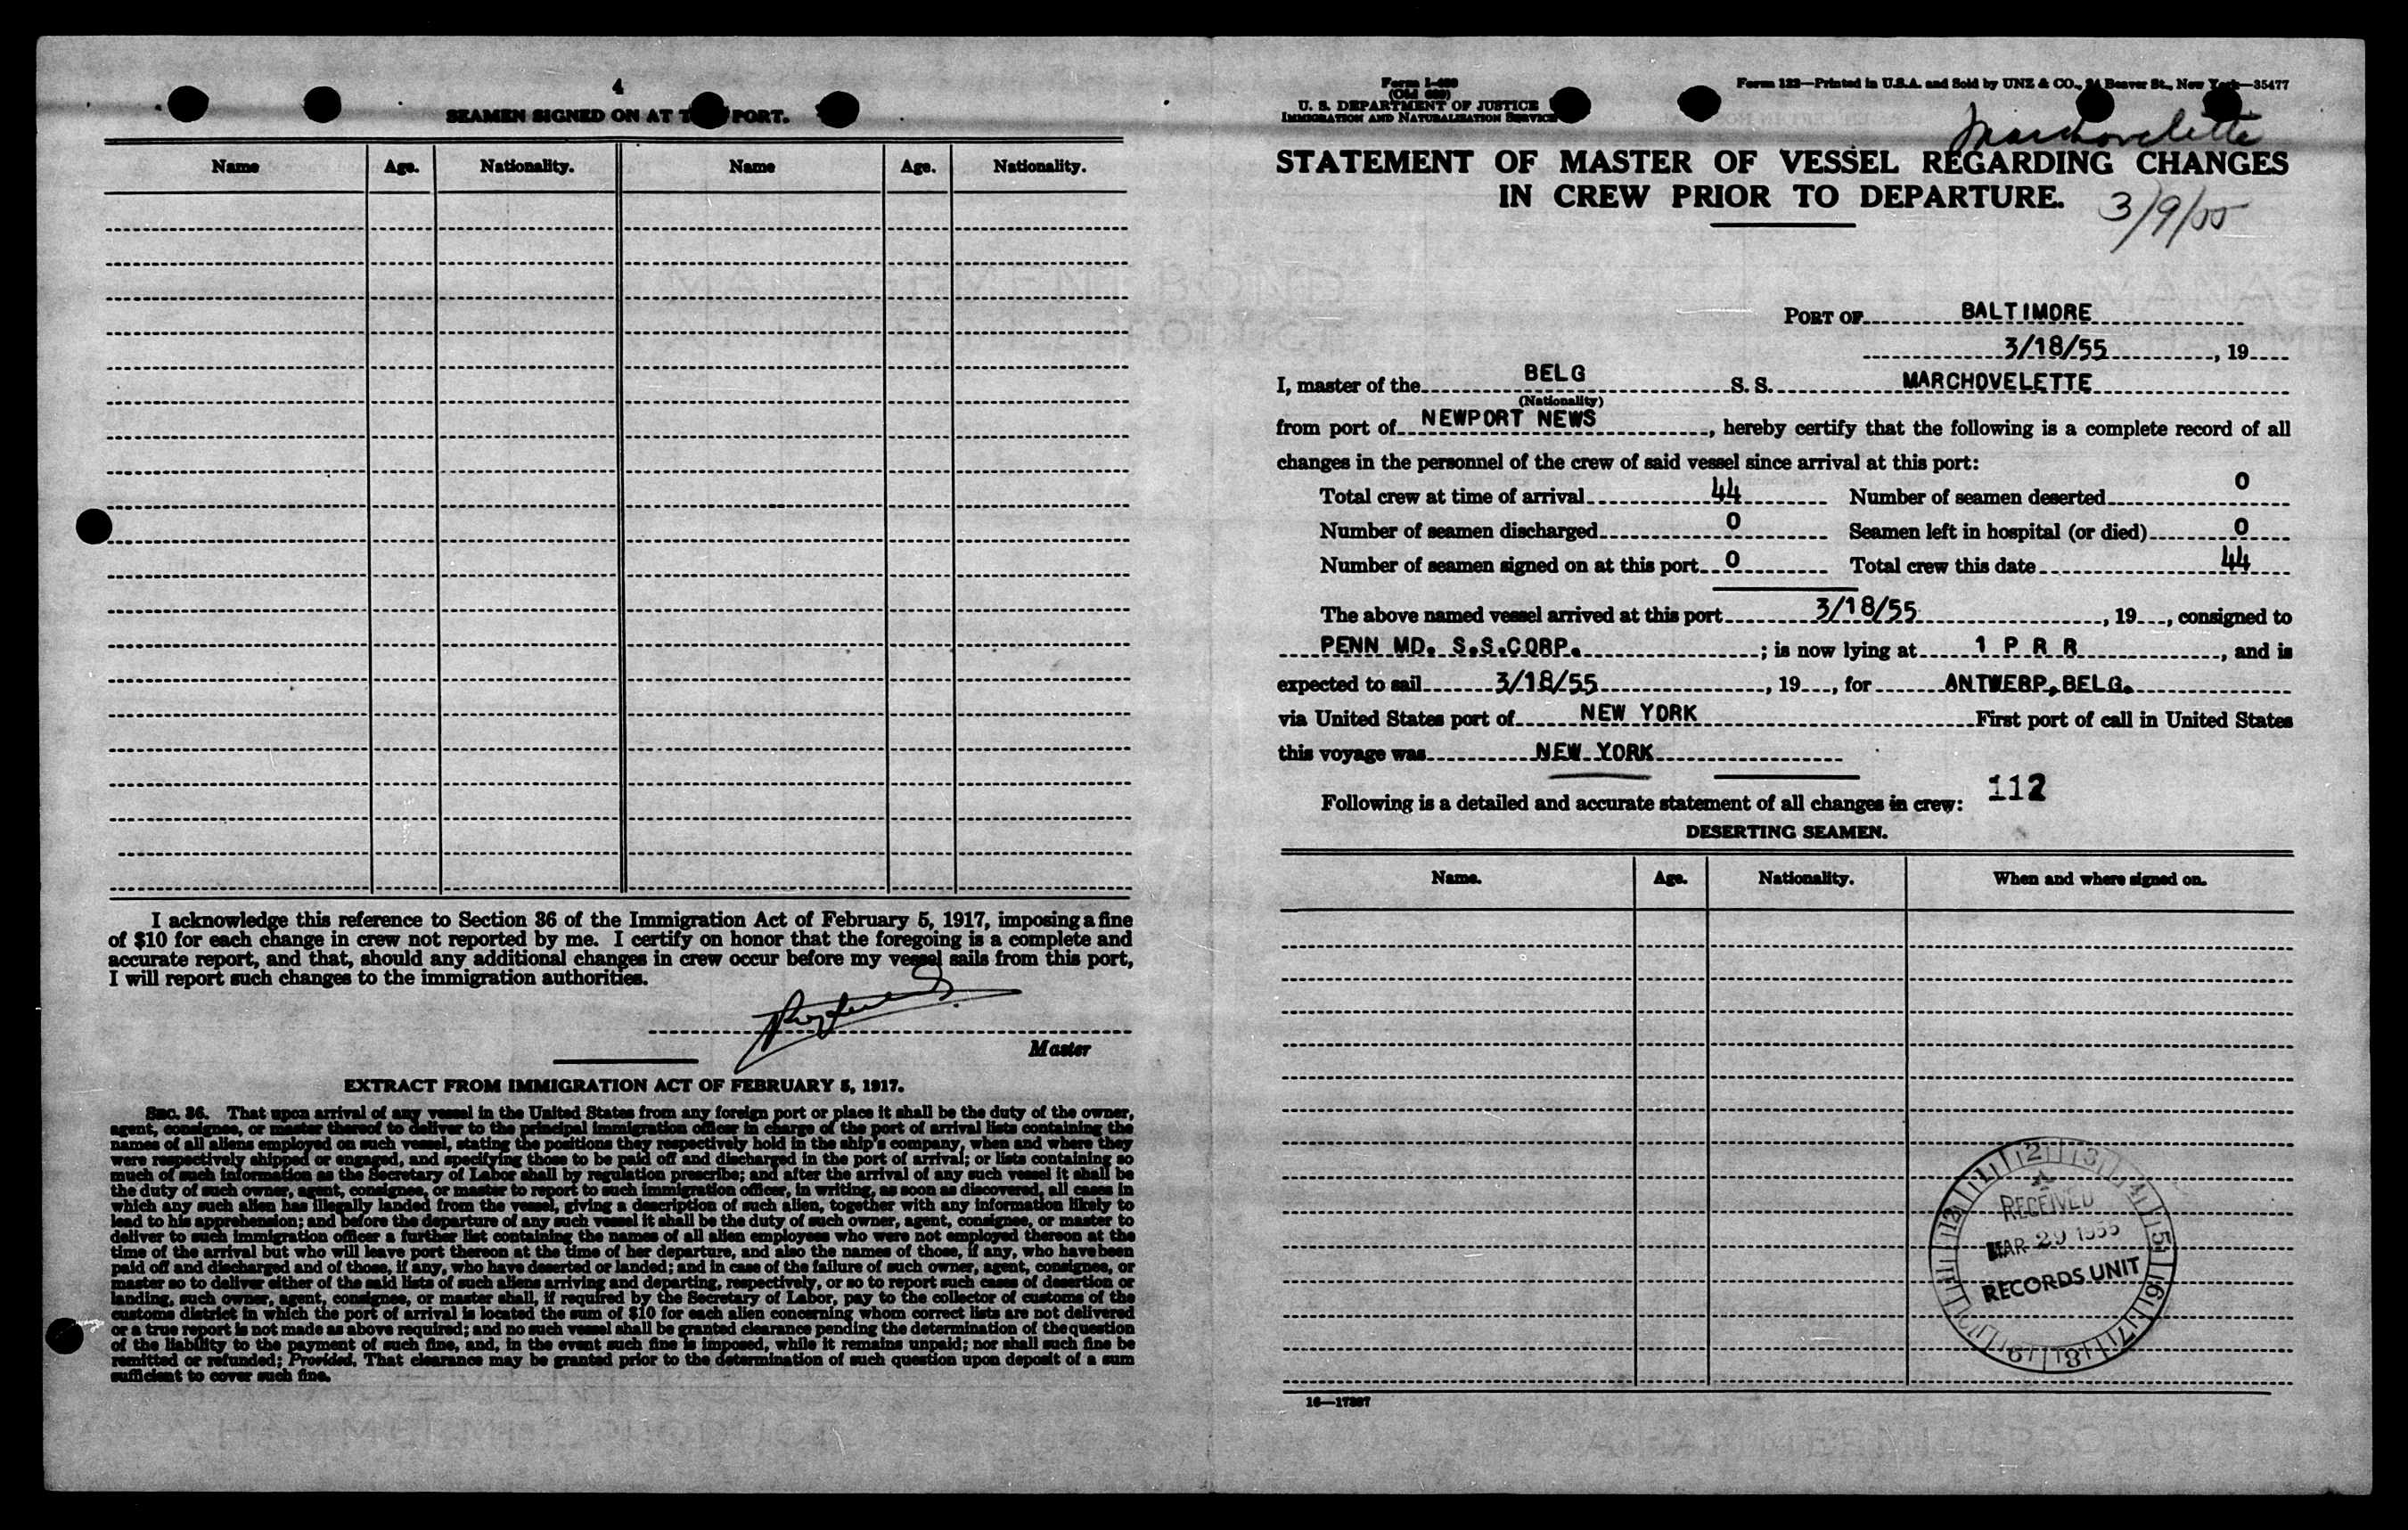 4
SEAMEN SIGNED ON AT PORT.
Name Age. Nationality. Name Age. Nationality.
I acknowledge this reference to Section 36 of the Immigration Act of February 5, 1917, imposing a fine
of $10 for each change in crew not reported by me. I certify on honor that the foregoing is a complete and
accurate report, and that, should any additional changes in crew occur before my vessel sails from this port,
I will report such changes to the immigration authorities.
Master
EXTRACT FROM IMMIGRATION ACT OF FEBRUARY 5, 1917.
SEC. 36. That upon arrival of any vessel in the United States from any foreign port or place it shall be the duty of the owner,
agent, consignee, or master thereof to deliver to the principal immigration officer in charge of the port of arrival lists containing the
names of all aliens employed on such vessel, stating the positions they respectively hold in the ship's company, when and where they
were respectively shipped or engaged, and specifying those to be paid off and discharged in the port of arrival; or lists containing so
much of such information as the Secretary of Labor shall by regulation prescribe; and after the arrival of any such vessel it shall be
the duty of such owner, agent, consignee, or master to report to such immigration officer, in writing, as soon as discovered, all cases in
which any such alien has illegally landed from the vessel, giving a description of such alien, together with any information likely to
lead to his apprehension; and before the departure of any such vessel it shall be the duty of such owner, agent, consignee, or master to
deliver to such immigration officer a further list containing the names of all alien employees who were not employed thereon at the
time of the arrival but who will leave port thereon at the time of her departure, and also the names of those, if any, who have been
paid off and discharged and of those, if any, who have deserted or landed; and in case of the failure of such owner, agent, consignee, or
master so to deliver either of the said lists of such aliens arriving and departing, respectively, or so to report such cases of desertion or
landing, such owner, agent, consignee, or master shall, if required by the Secretary of Labor, pay to the collector of customs of the
customs district in which the port of arrival is located the sum of $10 for each alien concerning whom correct lists are not delivered
or a true report is not made as above required; and no such vessel shall be granted clearance pending the determination of the question
of the liability to the payment of such fine, and, in the event such fine is imposed, while it remains unpaid; nor shall such fine be
remitted or refunded; Provided, That clearance may be granted prior to the determination of such question upon deposit of a sum
sufficient to cover such fine.
Form I-489
(Old 689)
U. S. DEPARTMENT OF JUSTICE
IMMIGRATION AND NATURALIZATION SERVICE
Form 122—Printed in U.S.A. and Sold by UNZ & CO., 24 Beaver St., New York—35477
Marchovelette
STATEMENT OF MASTER OF VESSEL REGARDING CHANGES
IN CREW PRIOR TO DEPARTURE.
3/9/55
PORT OF BALTIMORE
3/18/55, 19
I, master of the BELG S. S. MARCHOVELETTE
(Nationality)
from port of NEWPORT NEWS, hereby certify that the following is a complete record of all
changes in the personnel of the crew of said vessel since arrival at this port:
Total crew at time of arrival 44 Number of seamen deserted 0
Number of seamen discharged 0 Seamen left in hospital (or died) 0
Number of seamen signed on at this port 0 Total crew this date 44
The above named vessel arrived at this port 3/18/55, 19, consigned to
PENN MD. S.S.CORP.; is now lying at 1 P R R, and is
expected to sail 3/18/55, 19, for ANTWERP,BELG.
via United States port of NEW YORK First port of call in United States
this voyage was NEW YORK
Following is a detailed and accurate statement of all changes in crew: 112
DESERTING SEAMEN.
Name. Age. Nationality. When and where signed on.
RECEIVED
MAR 29 1955
RECORDS UNIT
16—17387